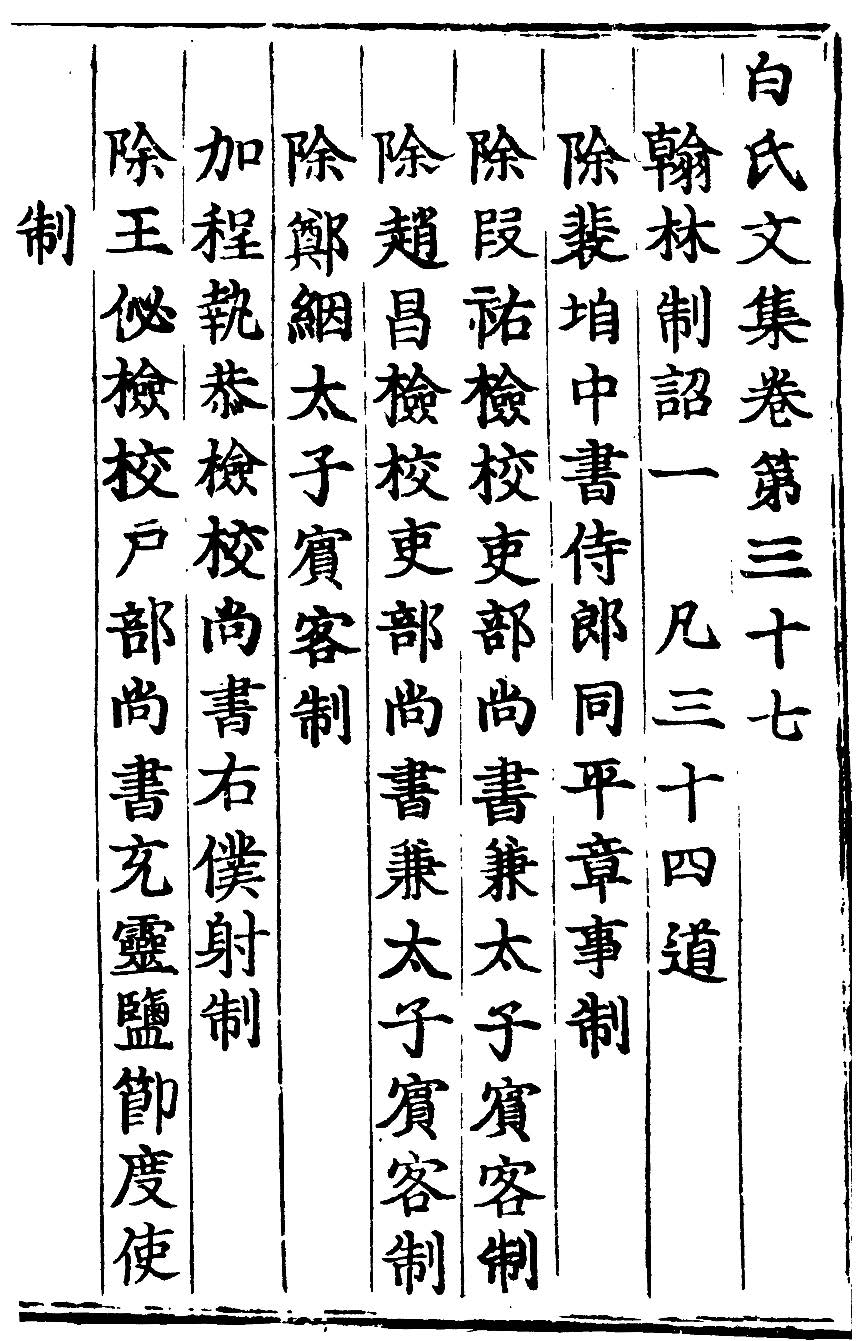 白氏文集卷第三十七
翰林制詔一　凡三十四道
除裴垍中書侍郎同平章事制
除段祐檢校吏部尚書兼太子賓客制
除趙昌檢校吏部尚書兼太子賓客制
除鄭絪太子賓客制
加程執恭檢校尚書右僕射制
除王佖檢校戶部尚書充靈鹽節度使
制